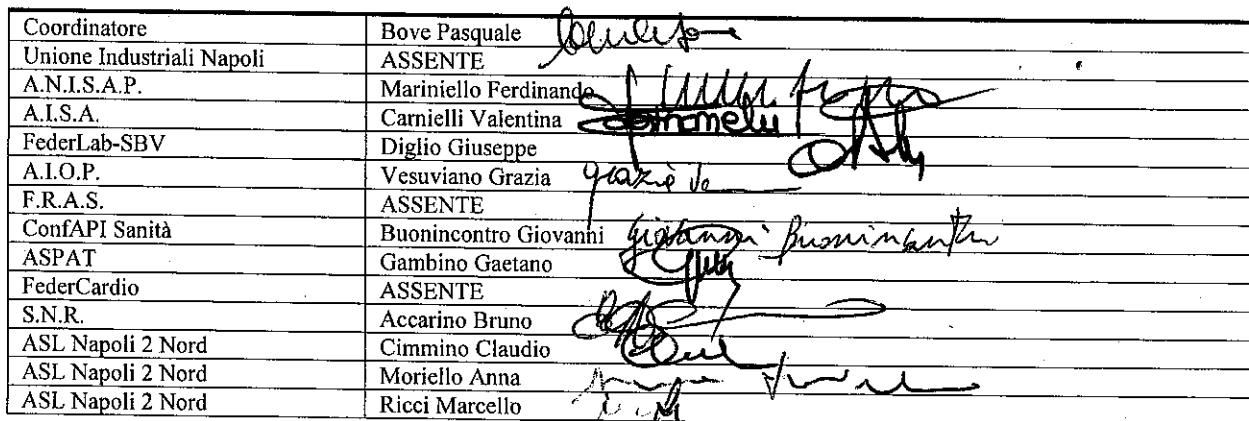 Coordinatore Bove Pasquale
Unione Industriali Napoli ASSENTE
A.N.I.S.A.P. Mariniello Ferdinando
A.I.S.A. Carnielli Valentina
FederLab-SBV Diglio Giuseppe
A.I.O.P. Vesuviano Grazia grazia Ve
F.R.A.S. ASSENTE
ConfAPI Sanità Buonincontro Giovanni Giovanni Buonincontro
ASPAT Gambino Gaetano
FederCardio ASSENTE
S.N.R. Accarino Bruno
ASL Napoli 2 Nord Cimmino Claudio
ASL Napoli 2 Nord Moriello Anna
ASL Napoli 2 Nord Ricci Marcello